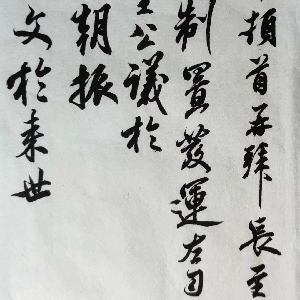 頓首再拜長至
制置發運左司
公議於
朝振
文於来世